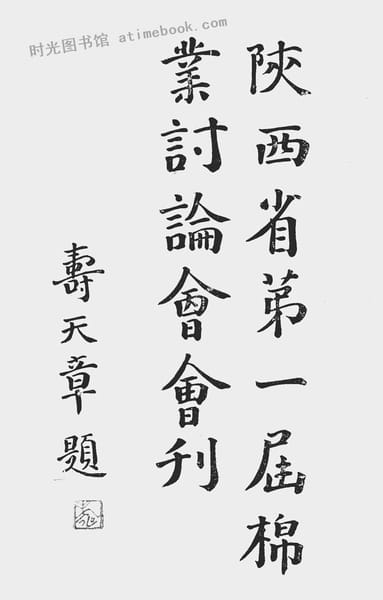 时光图书馆 atimebook.com
陝西省第一屆棉
業討論會會刊
壽天章題